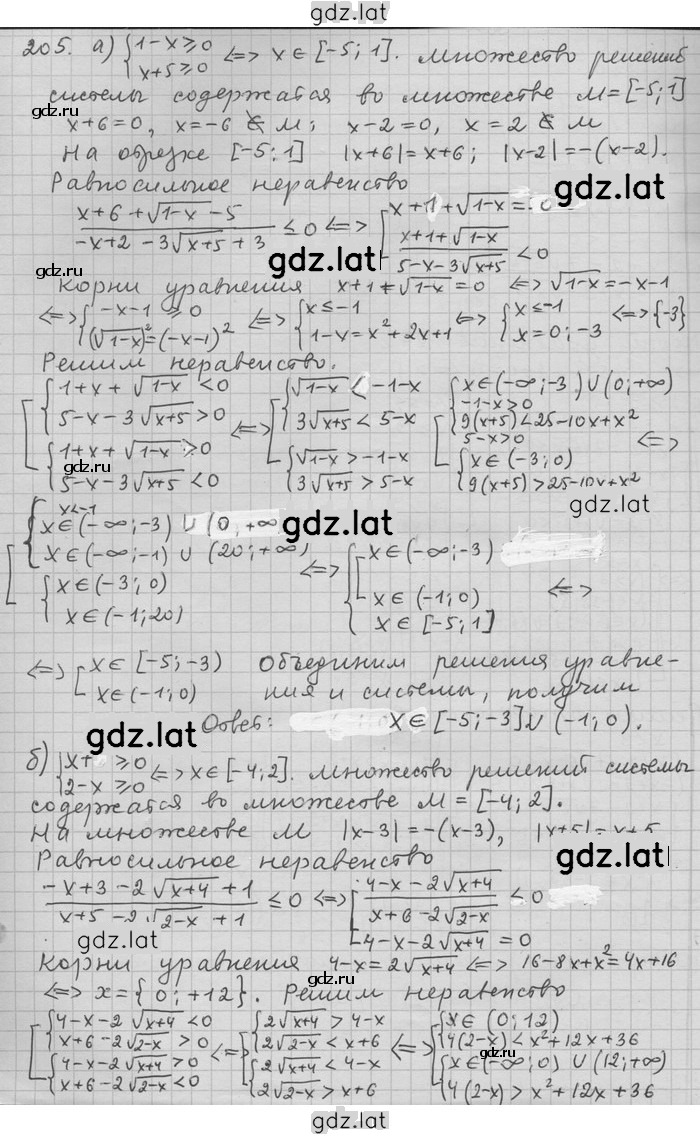 gdz.lat
205. а) {1-x≥0 x+5≥0 <=> x∈[-5;1]. множество решений
системы содержатся во множестве M=[-5;1]
x+6=0, x=-6 ∉ M; x-2=0, x=2 ∉ M
На отрезке [-5;1] |x+6|=x+6; |x-2|=-(x-2).
Равносильное неравенство
(x+6+√(1-x)-5)/(-x+2-3√(x+5)+3) ≤0 <=> [x+1+√(1-x)=0 (x+1+√(1-x))/(5-x-3√(x+5)) <0
Корни уравнения x+1+√(1-x)=0 <=> √(1-x)=-x-1
<=> {-x-1≥0 (√(1-x))²=(-x-1)² <=> {x≤-1 1-x=x²+2x+1 <=> {x≤-1 x=0;-3 <=> {-3}
Решим неравенство.
[{1+x+√(1-x)<0 5-x-3√(x+5)>0 {1+x+√(1-x)>0 5-x-3√(x+5)<0 <=> [{√(1-x)<-1-x 3√(x+5)<5-x {√(1-x)>-1-x 3√(x+5)>5-x [{x∈(-∞;-3)∪(0;+∞) -1-x>0 9(x+5)<25-10x+x² 5-x>0 {x∈(-3;0) 9(x+5)>25-10x+x² <=>
[{x<-1 x∈(-∞;-3)∪(0;+∞ x∈(-∞;-1)∪(20;+∞) {x∈(-3;0) x∈(-1;20) <=> {[x∈(-∞;-3) x∈(-1;0) x∈[-5;1] <=>
<=> [x∈[-5;-3) x∈(-1;0) Объединим решения уравне-
ния и системы, получим
Ответ: x∈[-5;-3]∪(-1;0).
б) {x+ ≥0 2-x≥0 <=> x∈[-4;2]. множество решений системы
содержатся во множестве M=[-4;2].
На множестве M |x-3|=-(x-3), |x+5|=x+5
Равносильное неравенство
(-x+3-2√(x+4)+1)/(x+5-2√(2-x)+1) ≤0 <=> [(4-x-2√(x+4))/(x+6-2√(2-x)) <0 4-x-2√(x+4)=0
Корни уравнения 4-x=2√(x+4) <=> 16-8x+x²=4x+16
<=> x={0;+12}. Решим неравенство
[{4-x-2√(x+4)<0 x+6-2√(2-x)>0 {4-x-2√(x+4)>0 x+6-2√(2-x)<0 <=> [{2√(x+4)>4-x 2√(2-x)<x+6 {2√(x+4)<4-x 2√(2-x)>x+6 <=> [{x∈(0;12) 4(2-x)<x²+12x+36 {x∈(-∞;0)∪(12;+∞) 4(2-x)>x²+12x+36
gdz.lat